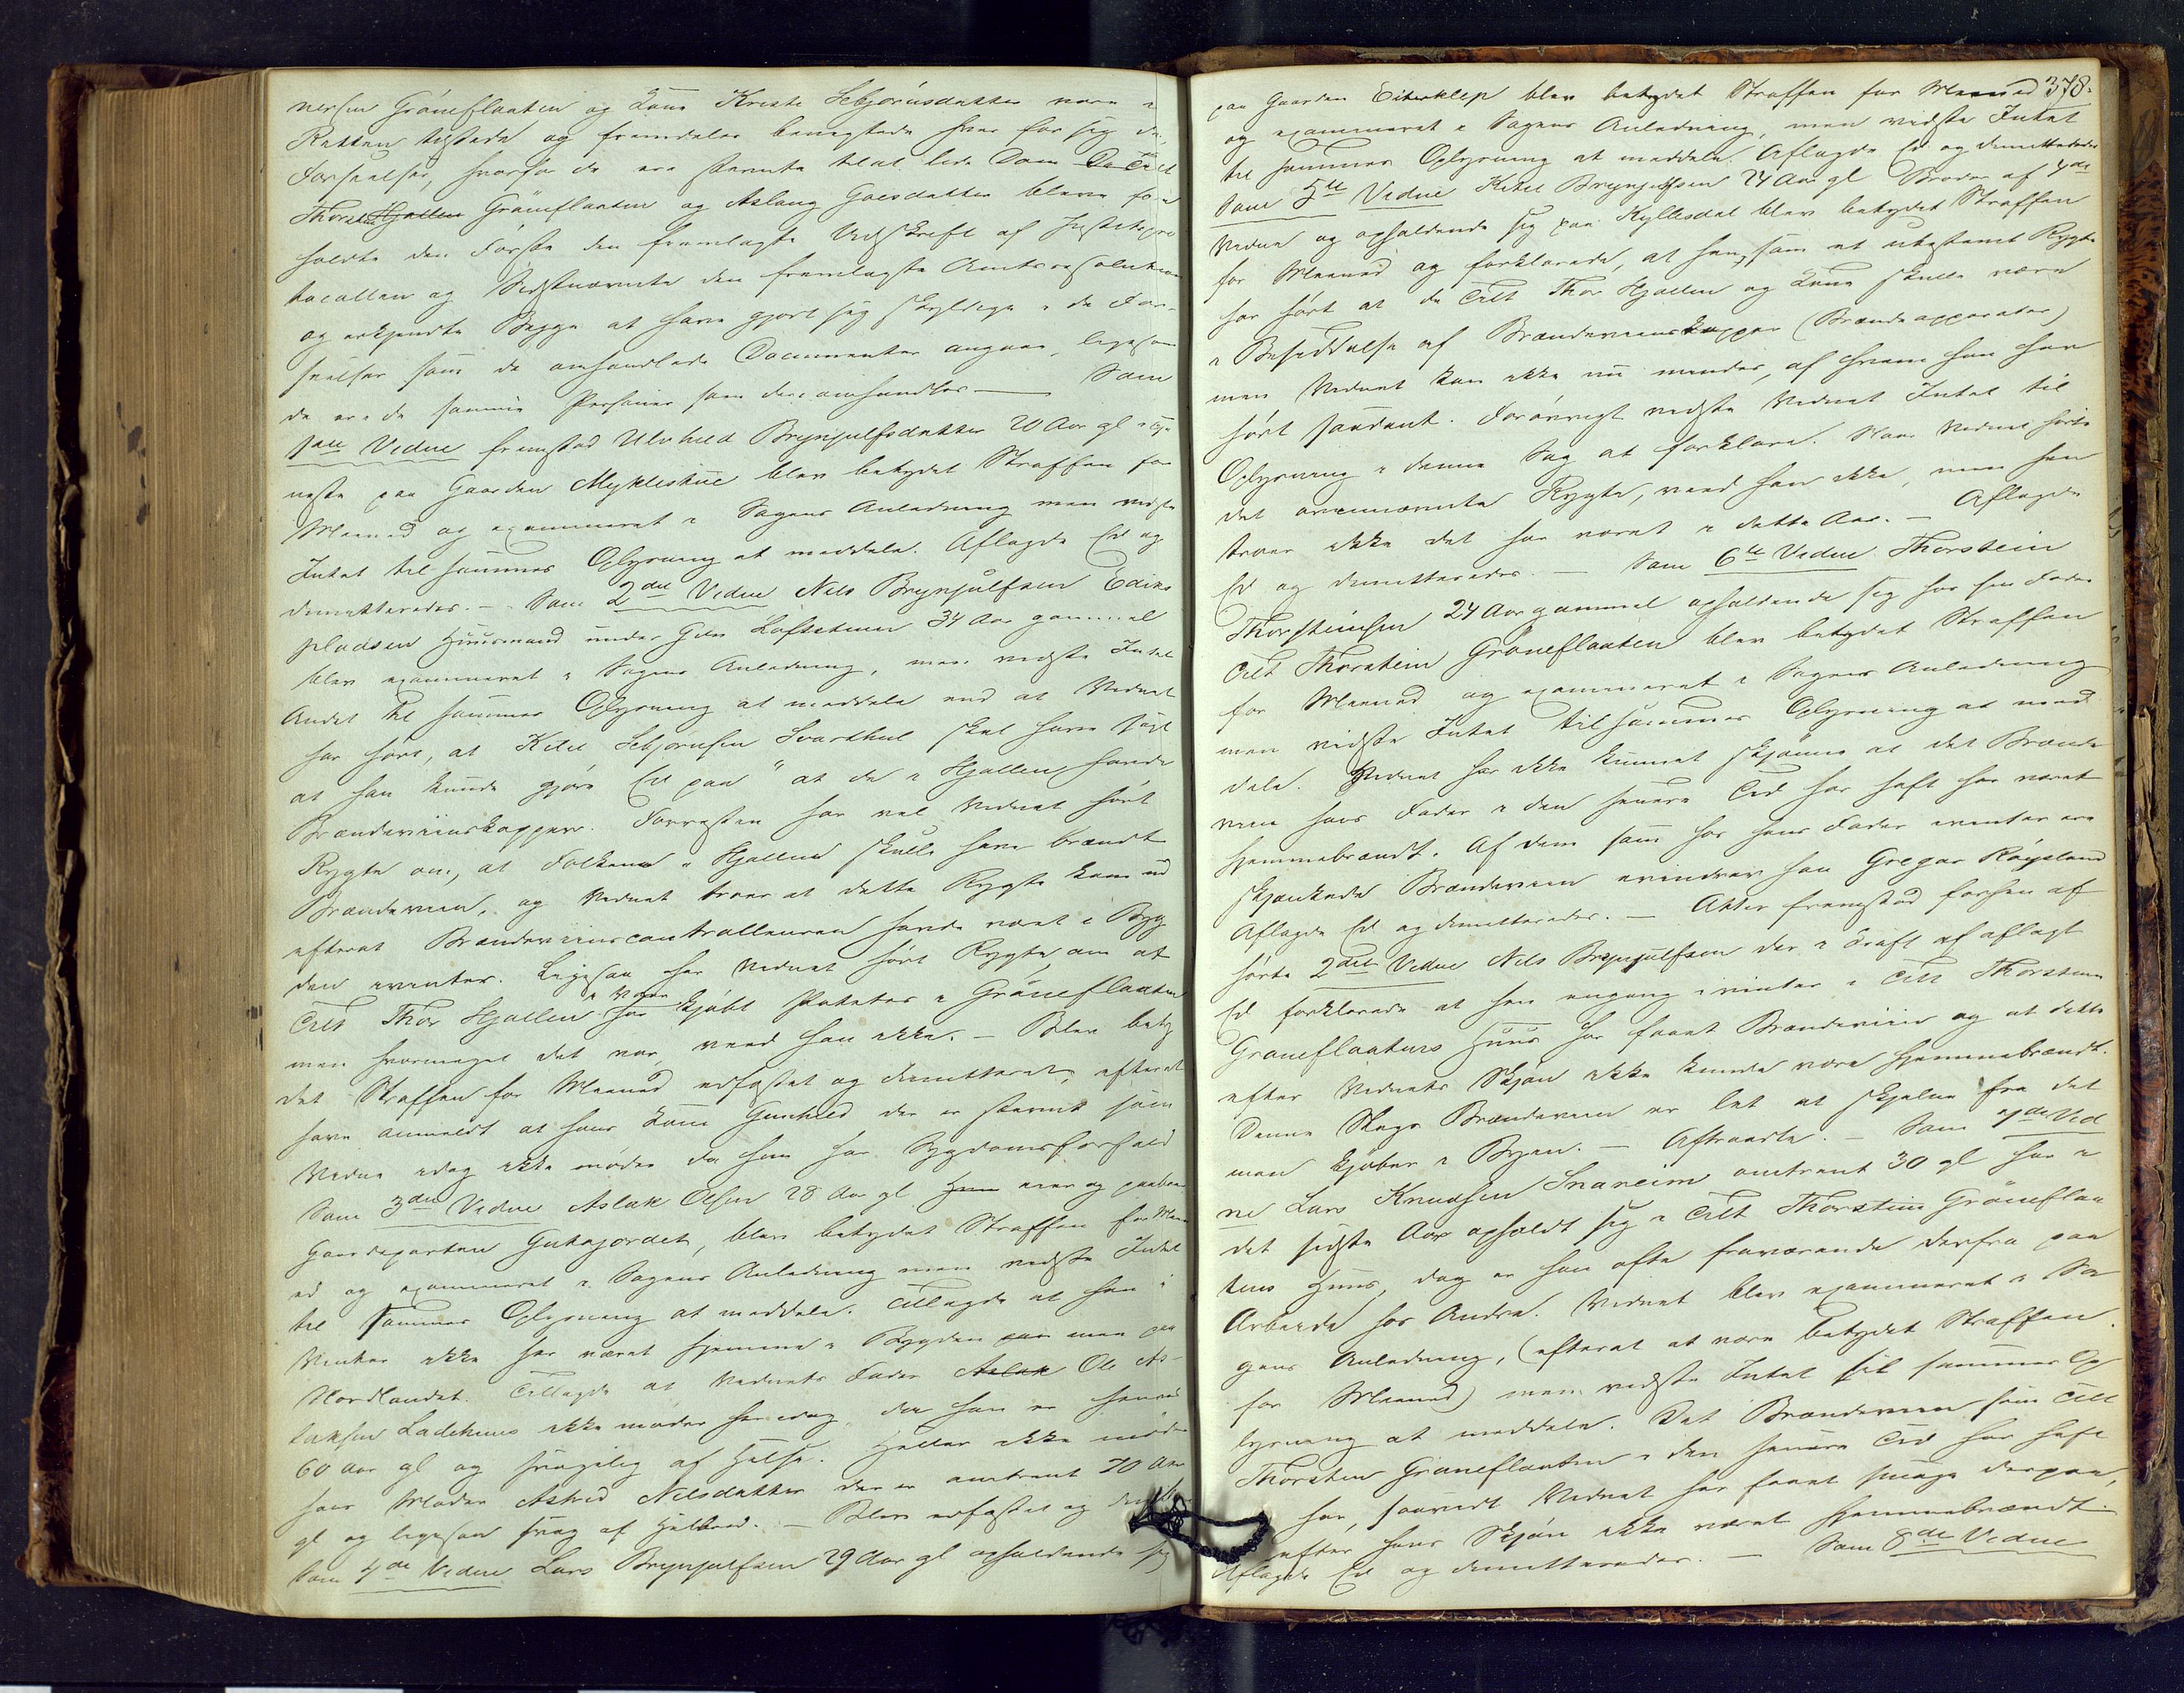 nersen Gröneflaaten og Kone Kirste Sebjörnsdatter vare i
Retten tilstede og fremdeles benegtede hver for sig de
Forseelser, hvorfor de ere stevnte til at lide Dom
Thorst Hjallen Gröneflaaten og Aslaug Goesdatter bleve fore
holdte den Første den fremlagte Udskrift af Justitspro
tocollen og Sidstnævnte den fremlagte Amtsresolution
og erkjendte Begge at have gjort sig skyldige i de For-
seelser som de omhandlede Documenter angaae, ligesom
de ere de samme Personer som deri omhandles — Som
1ste Vidne fremstod Ulvhild Brynjulfsdatter 20 Aar gl
paa Gaarden Myklestue blev betydet Straffen for
Meened og examineret i Sagens Anledning men vidste
Intet til sammes Oplysning at meddele. Aflagde Ed og
demitteredes. — Som 2det Vidne Nils Brynjulfsen Edins
pladsen Huusmand under Gdn Loftstuen 34 Aar gammel
blev examineret i Sagens Anledning, men vidste Intet
Andet til sammes Oplysning at meddele end at Vidnet
har hørt, at Kitil Sebjørnsen Svardhul skal have sagt
at han kunde gjøre Ed paa "at de i Hjallen havde
Brændeviinskopper. Forresten har vel Vidnet hørt
Rygte om, at Folkene i Hjallen skulle have brændt
Brændeviin, og Vidnet troer at dette Rygte kom ud
efterat Brændeviinscontrolleuren havde været i Byg
den ivinter. Ligesaa har Vidnet hørt Rygte om at
i Vaar
Tilt Thor Hjallen har kjøbt Poteter i Gröneflaaten
men hvormeget det var, veed han ikke. — Blev bety
det Straffen for Meened edfæstet og demitteret, efterat
have anmeldt at hans Kone Gunhild der er stevnt som
Vidne idag ikke møder da hun har Sygdomsforfald
Som 3die Vidne Aslak Olsen 28 Aar gl eier og paaboer
Gaardeparten Gutajordet, blev betydet Straffen for Meen
ed og examineret i Sagens Anledning men vidste Intet
til sammes Oplysning at meddele. Tillagde at han i
Vinter ikke har været hjemme i Bygden men paa
Nordlandet. Tillagde at Vidnets Fader Aslak Ole As-
laksen Ladehuus ikke møder her idag, da han er henved
60 Aar gl og svagelig af Helse. Heller ikke møder
hans Moder Astrid Nilsdatter der er omtrent 70 Aar
gl og ligesaa svag af Helbred. — Blev edfæstet og
Som 4de Vidne Lars Brynjulfsen 29 Aar gl opholdende sig
378.
paa Gaarden Eiterklep blev betydet Straffen for Meened
og examineret i Sagens Anledning, men vidste Intet
til sammes Oplysning at meddele. Aflagde Ed og demitteredes
Som 5te Vidne Kitil Brynjulfsen 24 Aar gl Broder af 4de
Vidne og opholdende sig paa Kyllesdal blev betydet Straffen
for Meened og forklarede, at han som et ubestemt Rygte
har hørt at de Tilt Thor Hjallen og Kone skulle være
i Besiddelse af Brændeviinskopper (Brændeapparater)
men Vidnet kan ikke nu mindes, af hvem han har
hørt saadant. Forøvrigt vidste Vidnet Intet til
Oplysning i denne Sag at forklare. Naar Vidnet hørte
det ovennævnte Rygte, veed han ikke, men han
troer ikke det har været i dette Aar. — Aflagde
Ed og demitteredes. — Som 6te Vidne Thorstein
Thorsteinsen 24 Aar gammel opholdende sig hos sin Fader
Tilt Thorstein Gröneflaaten blev betydet Straffen
for Meened og examineret i Sagens Anledning
men vidste Intet til sammes Oplysning at med
dele. Vidnet har ikke kunnet skjønne at det Brænde
viin hans Fader i den senere Tid har haft har været
hjemmebrændt. Af dem som hos hans Fader ivinter ere
skjænkede Brændeviin erindrer han Gregar Röysland
Aflagde Ed og demitteredes. — Atter fremstod forhen af
hørte 2det Vidne Nils Brynjulfsen der i Kraft af aflagt
Ed forklarede at han engang ivinter i Tilt Thorstein
Gröneflaatens Huus har faaet Brændeviin og at dette
efter Vidnets Skjøn ikke kunde være hjemmebrændt.
Denne Slags Brændeviin er let at skjelne fra det
man kjøber i Byen. — Aftraadte. — Som 7de Vid
ne Lars Knudsen Snareim omtrent 30 gl har i
det sidste Aar opholdt sig i Tilt Thorstein Gröneflaa
tens Huus, dog er han ofte fraværende derfra paa
Arbeide hos Andre. Vidnet blev examineret i Sa
gens Anledning, (efterat at være betydet Straffen
for Meened) men vidste Intet til sammes Op
lysning at meddele. Det Brændeviin som Tilt
Thorstein Gröneflaaten i den senere Tid har haft
har, saavidt Vidnet har faaet smage derpaa,
efter hans Skjøn ikke været hjemmebrændt.
Aflagde Ed og demitteredes. — Som 8de Vidne